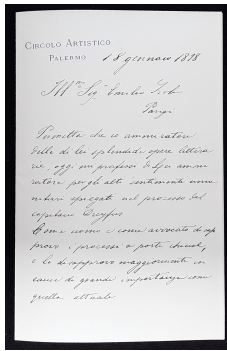 CIRCOLO ARTISTICO
PALERMO
18 gennaro 1898
Ill.mo Sig. Emilio Zola
Parigi
Permetta che io ammiratore
delle di lei splendide opere lettera
rie, oggi mi professi di Lei ammi
ratore per gli alti sentimenti uma
nitari spiegati nel processo del
capitano Dreyfus
Come uomo e come avvocato disap
provo i processi a porte chiuse,
e li disapprovo maggiormente in
cause di grande importanza come
quella attuale.